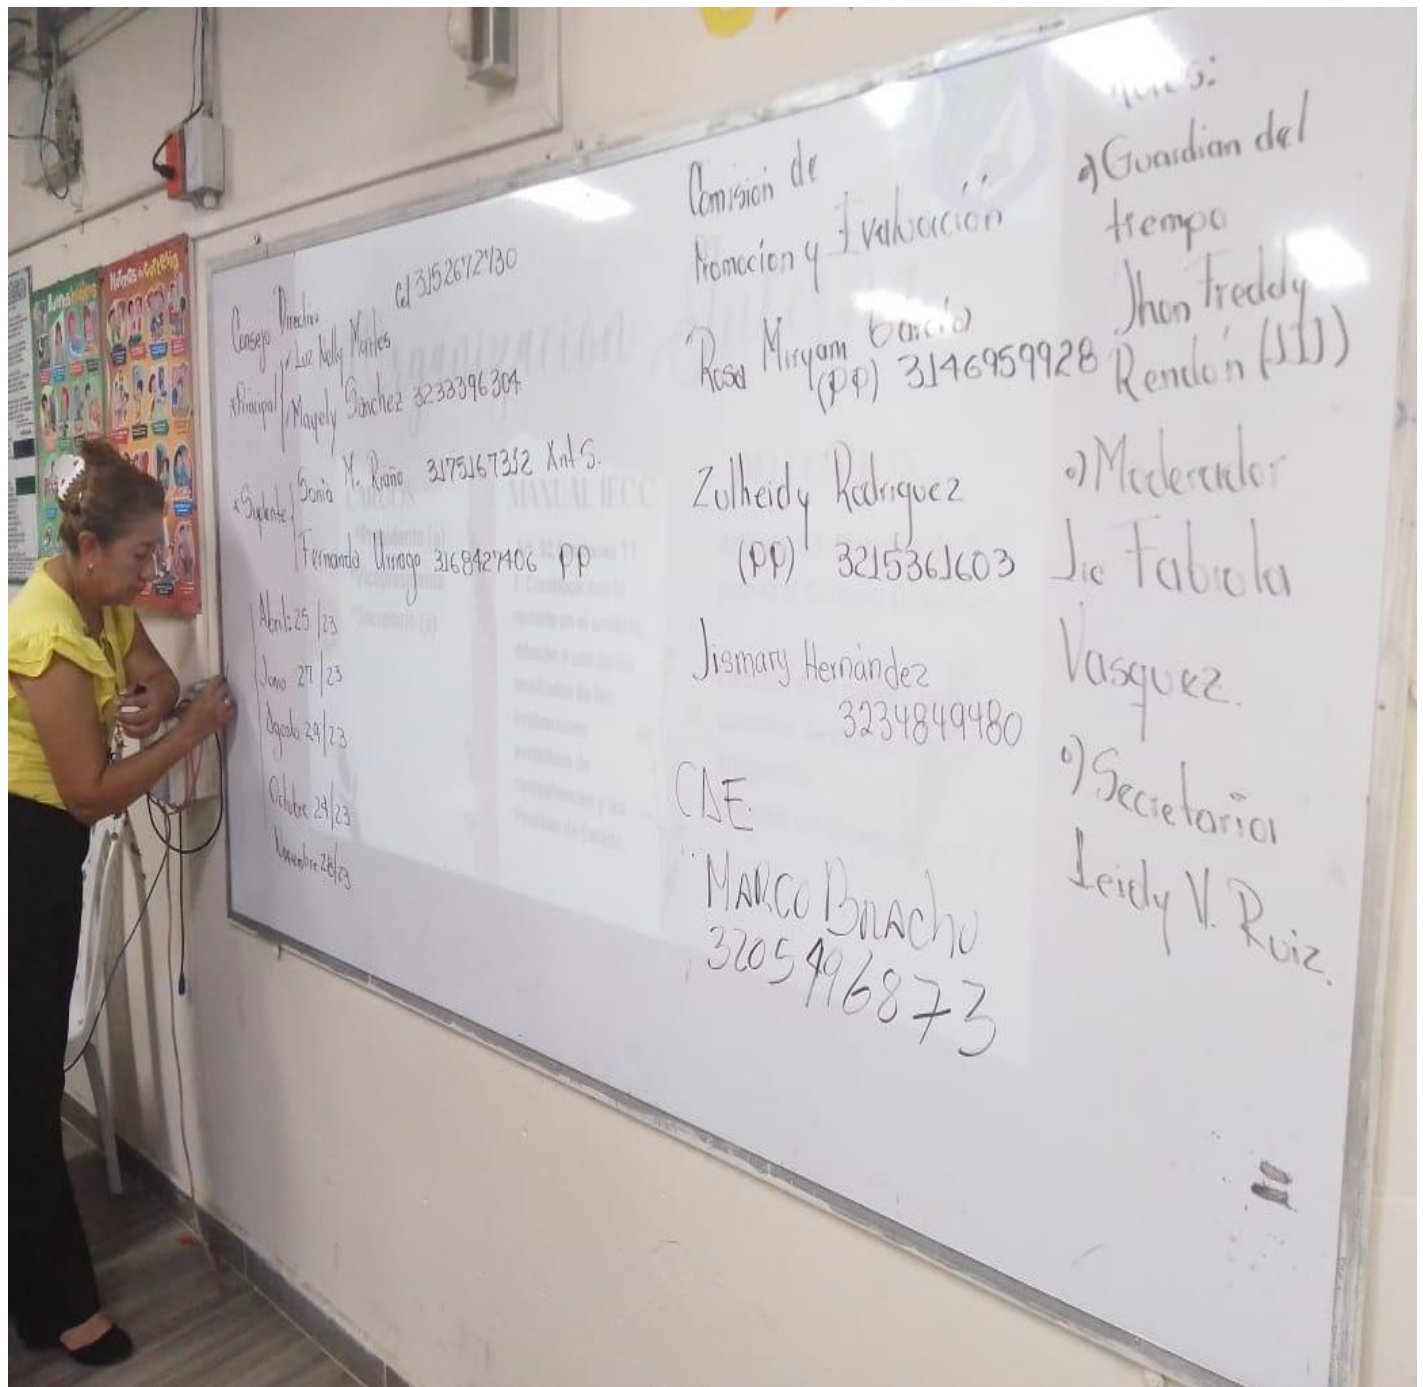 Consejo Directivo
Cel 3152672730
*Principal
Luz Nelly
Mayely Sánchez 3233396304
*Suplente
Sonia M. Riaño 3175167312
Fernando Urrego 3168427406 PP
Abril: 25/23
Junio 27/23
Agosto 29/23
Octubre 24/23
Noviembre 28/23
Comisión de
Promocion y Evaluación
Rosa Miryam García
(PP) 3146959928
Zulheidy Rodriguez
(PP) 3215361603
Jismary Hernández
3234849480
MARCO BRAcho
3205496873
Guardian del
tiempo
Jhon Freddy
Rendón (JJJ)
Moderador
Fabiola
Vasquez
Secretaria
Leidy V. Ruiz.
CARGOS
MANUAL IECC
Normas de Cortesía